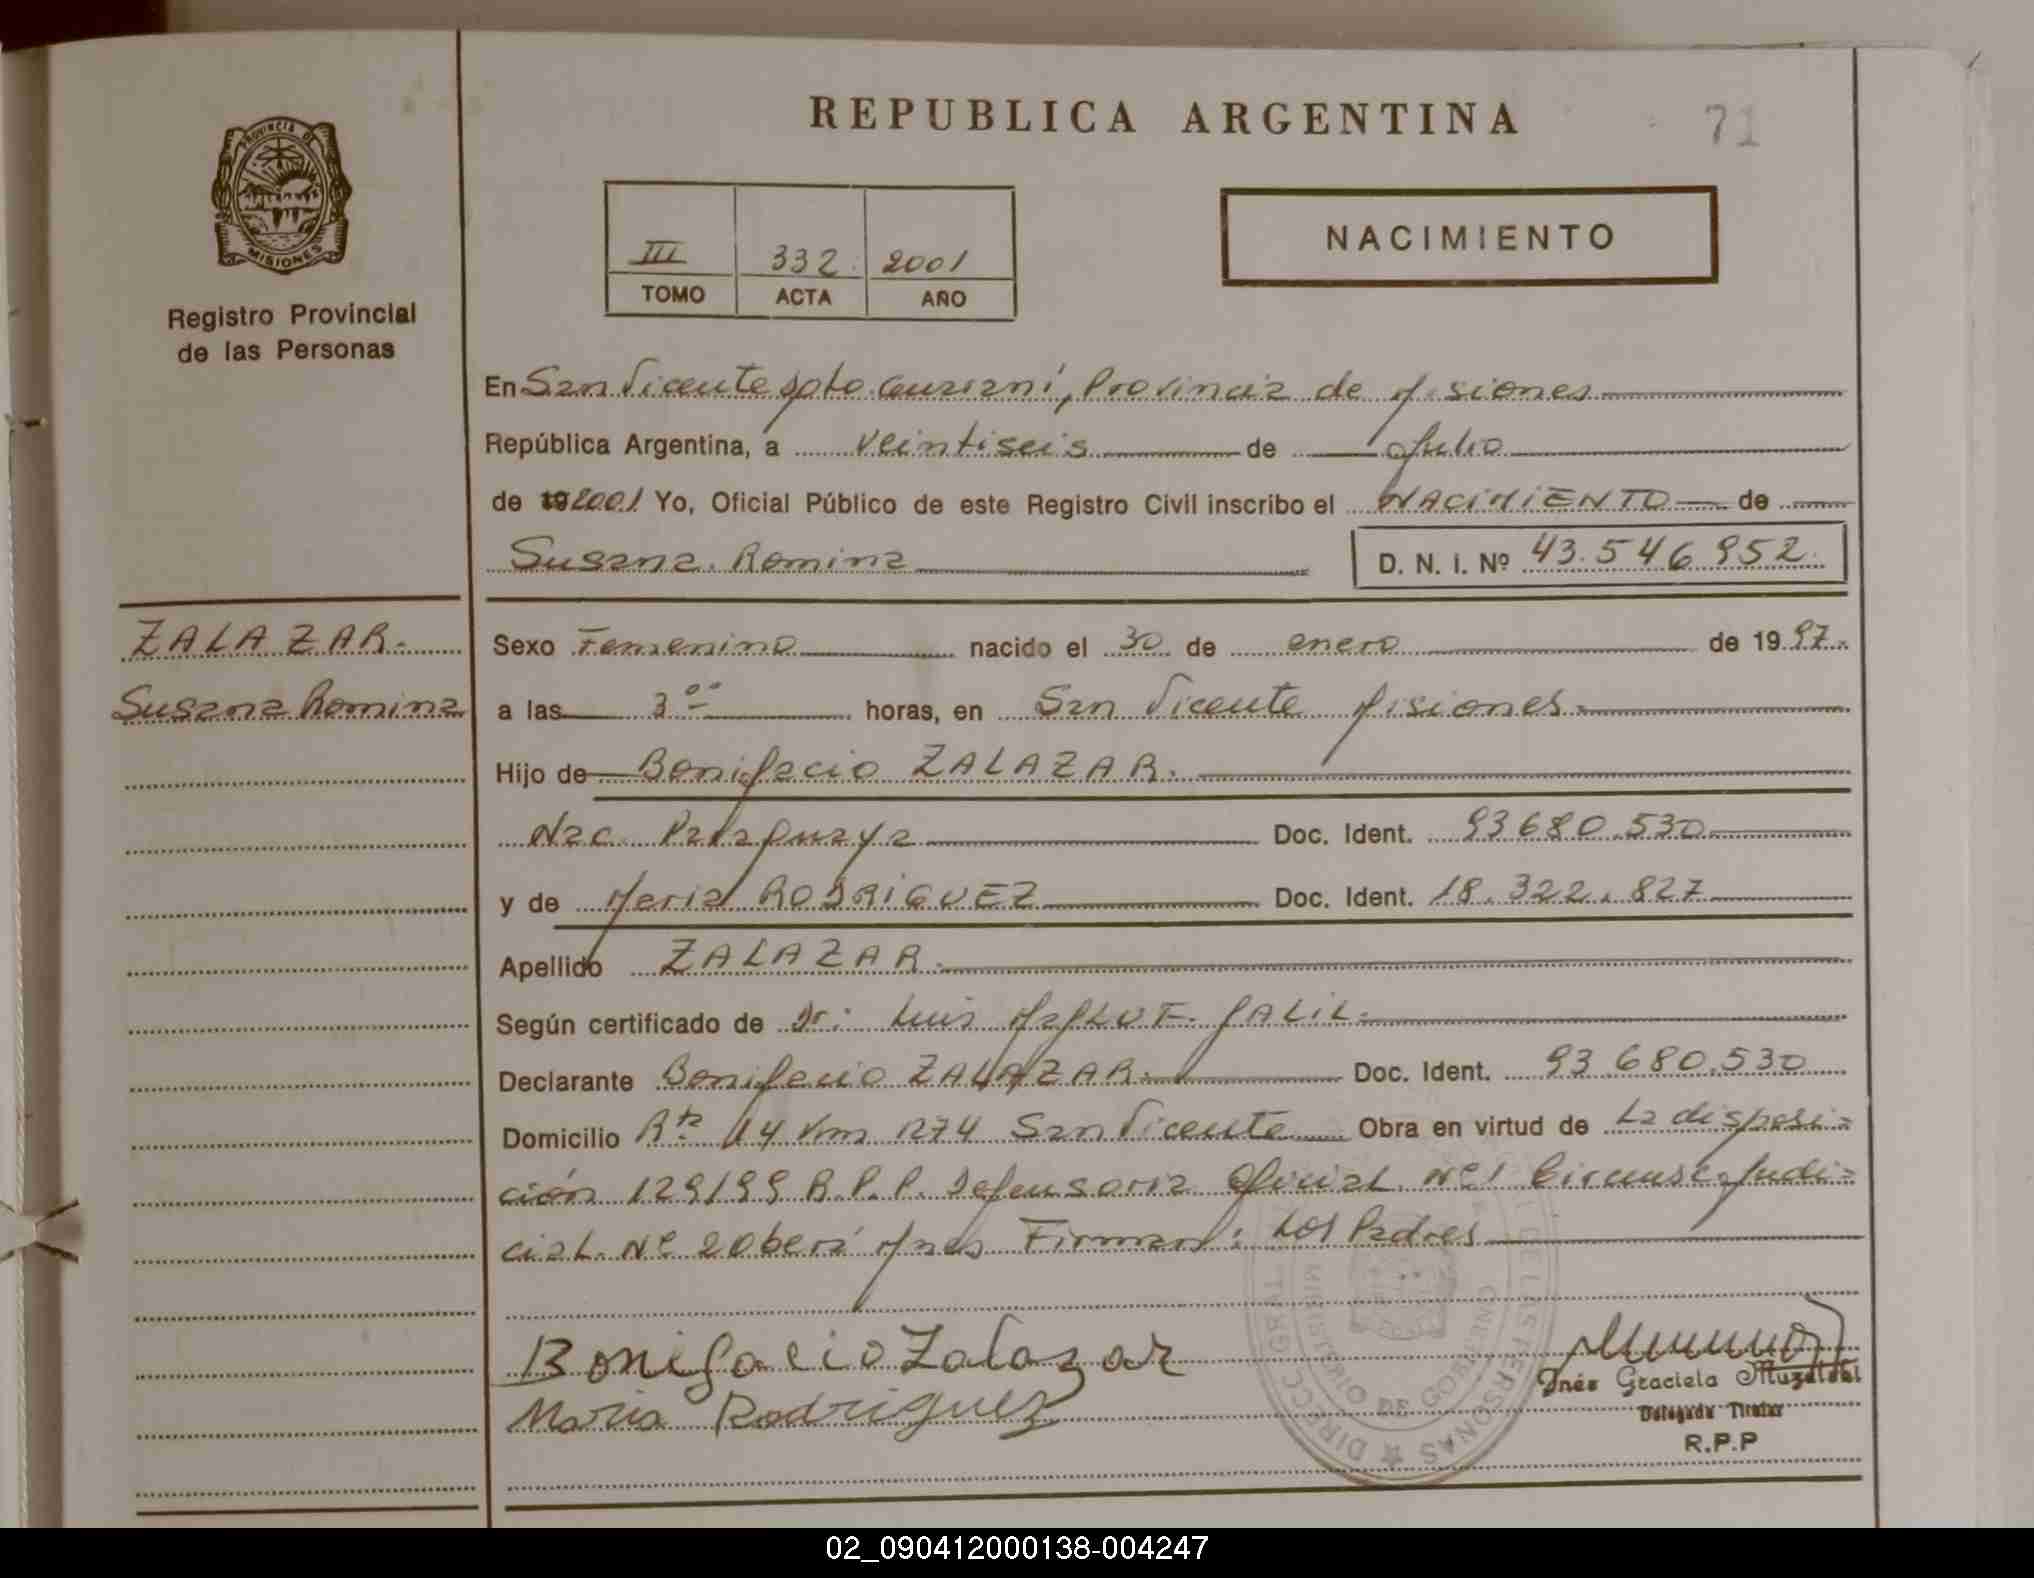 REPUBLICA ARGENTINA
71
PROVINCIA DE
MISIONES
Registro Provincial
de las Personas
III 332 2001
TOMO ACTA AÑO
NACIMIENTO
En San Vicente Dpto. Guaraní, Provincia de Misiones
República Argentina, a veintiseis de Julio
de 19 2001 Yo, Oficial Público de este Registro Civil inscribo el NACIMIENTO de
Susana Romina D. N. I. Nº 43.546952
ZALAZAR.
Susana Romina
Sexo Femenino nacido el 30 de enero de 1997.
a las 3 00 horas, en San Vicente Misiones
Hijo de Bonifacio ZALAZAR.
Nac. Paraguaya Doc. Ident. 93680.530
y de Maria RODRIGUEZ Doc. Ident. 18.322.827
Apellido ZALAZAR.
Según certificado de Dr: Luis GALIL.
Declarante Bonifacio ZALAZAR. Doc. Ident. 93.680.530
Domicilio Rta 14 Km 1274 San Vicente Obra en virtud de La disposi=
ción 129/99 R.P.P. Defensoria Oficial Nº 1 Circunsc. Judi=
cial Nº 2 Oberá Mnes Firman: Los Padres
Bonifacio Zalazar
Maria Rodriguez
DIRECC GRAL DE LAS PERSONAS
MINISTERIO DE GOBIERNO
Inés Graciela
Delegada Titular
R.P.P
02_090412000138-004247